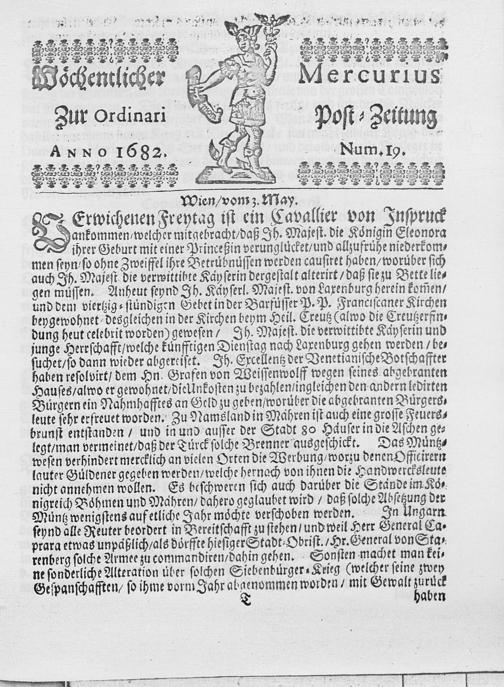 Wöchentlicher Mercurius
Zur Ordinari Post-Zeitung
ANNO 1682. Num. 19.
Wien/vom 3. May.
VErwichenen Freytag ist ein Cavallier von Inspruck
ankommen/welcher mitgebracht/daß Ih. Majest. die Königin Eleonora
ihrer Geburt mit einer Princeßin verunglücket/und allzufrühe niederkom-
men seyn/so ohne Zweiffel ihre Betrübnüssen werden causiret haben/worüber sich
auch Ih. Majest die verwittibte Käyserin dergestalt alterirt/daß sie zu Bette lie-
gen müssen. Anheut seynd Ih. Käyserl. Majest. von Laxenburg herein kom̃en/
und dem viertzig-stündigen Gebet in der Barfüsser P.P. Franciscaner Kirchen
beygewohnet/desgleichen in der Kirchen beym Heil. Creutz (alwo die Creutzerfin-
dung heut celebrirt worden) gewesen/ Ih. Majest. die verwittibte Käyserin und
junge Herrschafft/welche künfftigen Dienstag nach Laxenburg gehen werden/be-
suchet/so dann wieder abgereiset. Ih. Excellentz der Venetianische Botschaffter
haben resolvirt/dem Hn. Grafen von Weissenwolff wegen seines abgebranten
Hauses/alwo er gewohnet/die Unkosten zu bezahlen/ingleichen den andern ledirten
Bürgern ein Nahmhafftes an Geld zu geben/worüber die abgebranten Bürgers-
leute sehr erfreuet worden. Zu Namsland in Mähren ist auch eine grosse Feuers-
brunst entstanden/ und in und ausser der Stadt 80 Häuser in die Aschen ge-
legt/man vermeinet/daß der Türck solche Brenner ausgeschickt. Das Müntz-
wesen verhindert mercklich an vielen Orten die Werbung/worzu denen Officirern
lauter Güldener gegeben werden/welche hernach von ihnen die Handwercksleute
nicht annehmen wollen. Es beschweren sich auch darüber die Stände im Kö-
nigreich Böhmen und Mähren/dahero geglaubet wird/ daß solche Absetzung der
Müntz wenigstens auf etliche Jahr möchte verschoben werden. In Ungarn
seynd alle Reuter beordert in Bereitschafft zu stehen/und weil Herr General Ca-
prara etwas unpäßlich/als dörffte hiesiger Stadt-Obrist/Hr. General von Sta-
renberg solche Armee zu commandiren/dahin gehen. Sonsten machet man kei-
ne sonderliche Alteration über solchen Siebenbürger-Krieg (welcher seine zwey
Gespanschafften/so ihme vorm Jahr abgenommen worden/ mit Gewalt zurück
T haben